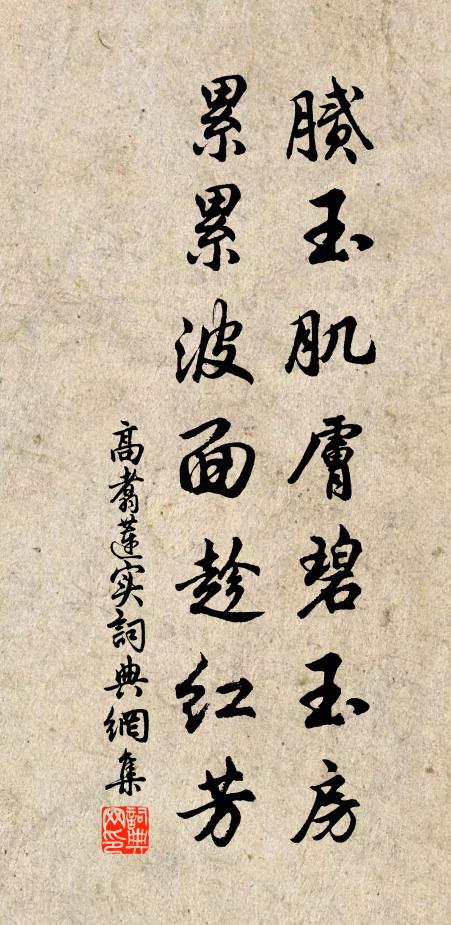 膩玉肌膚碧玉房
累累波面趁红芳
高翥蓮实詞典網集
詞典網印